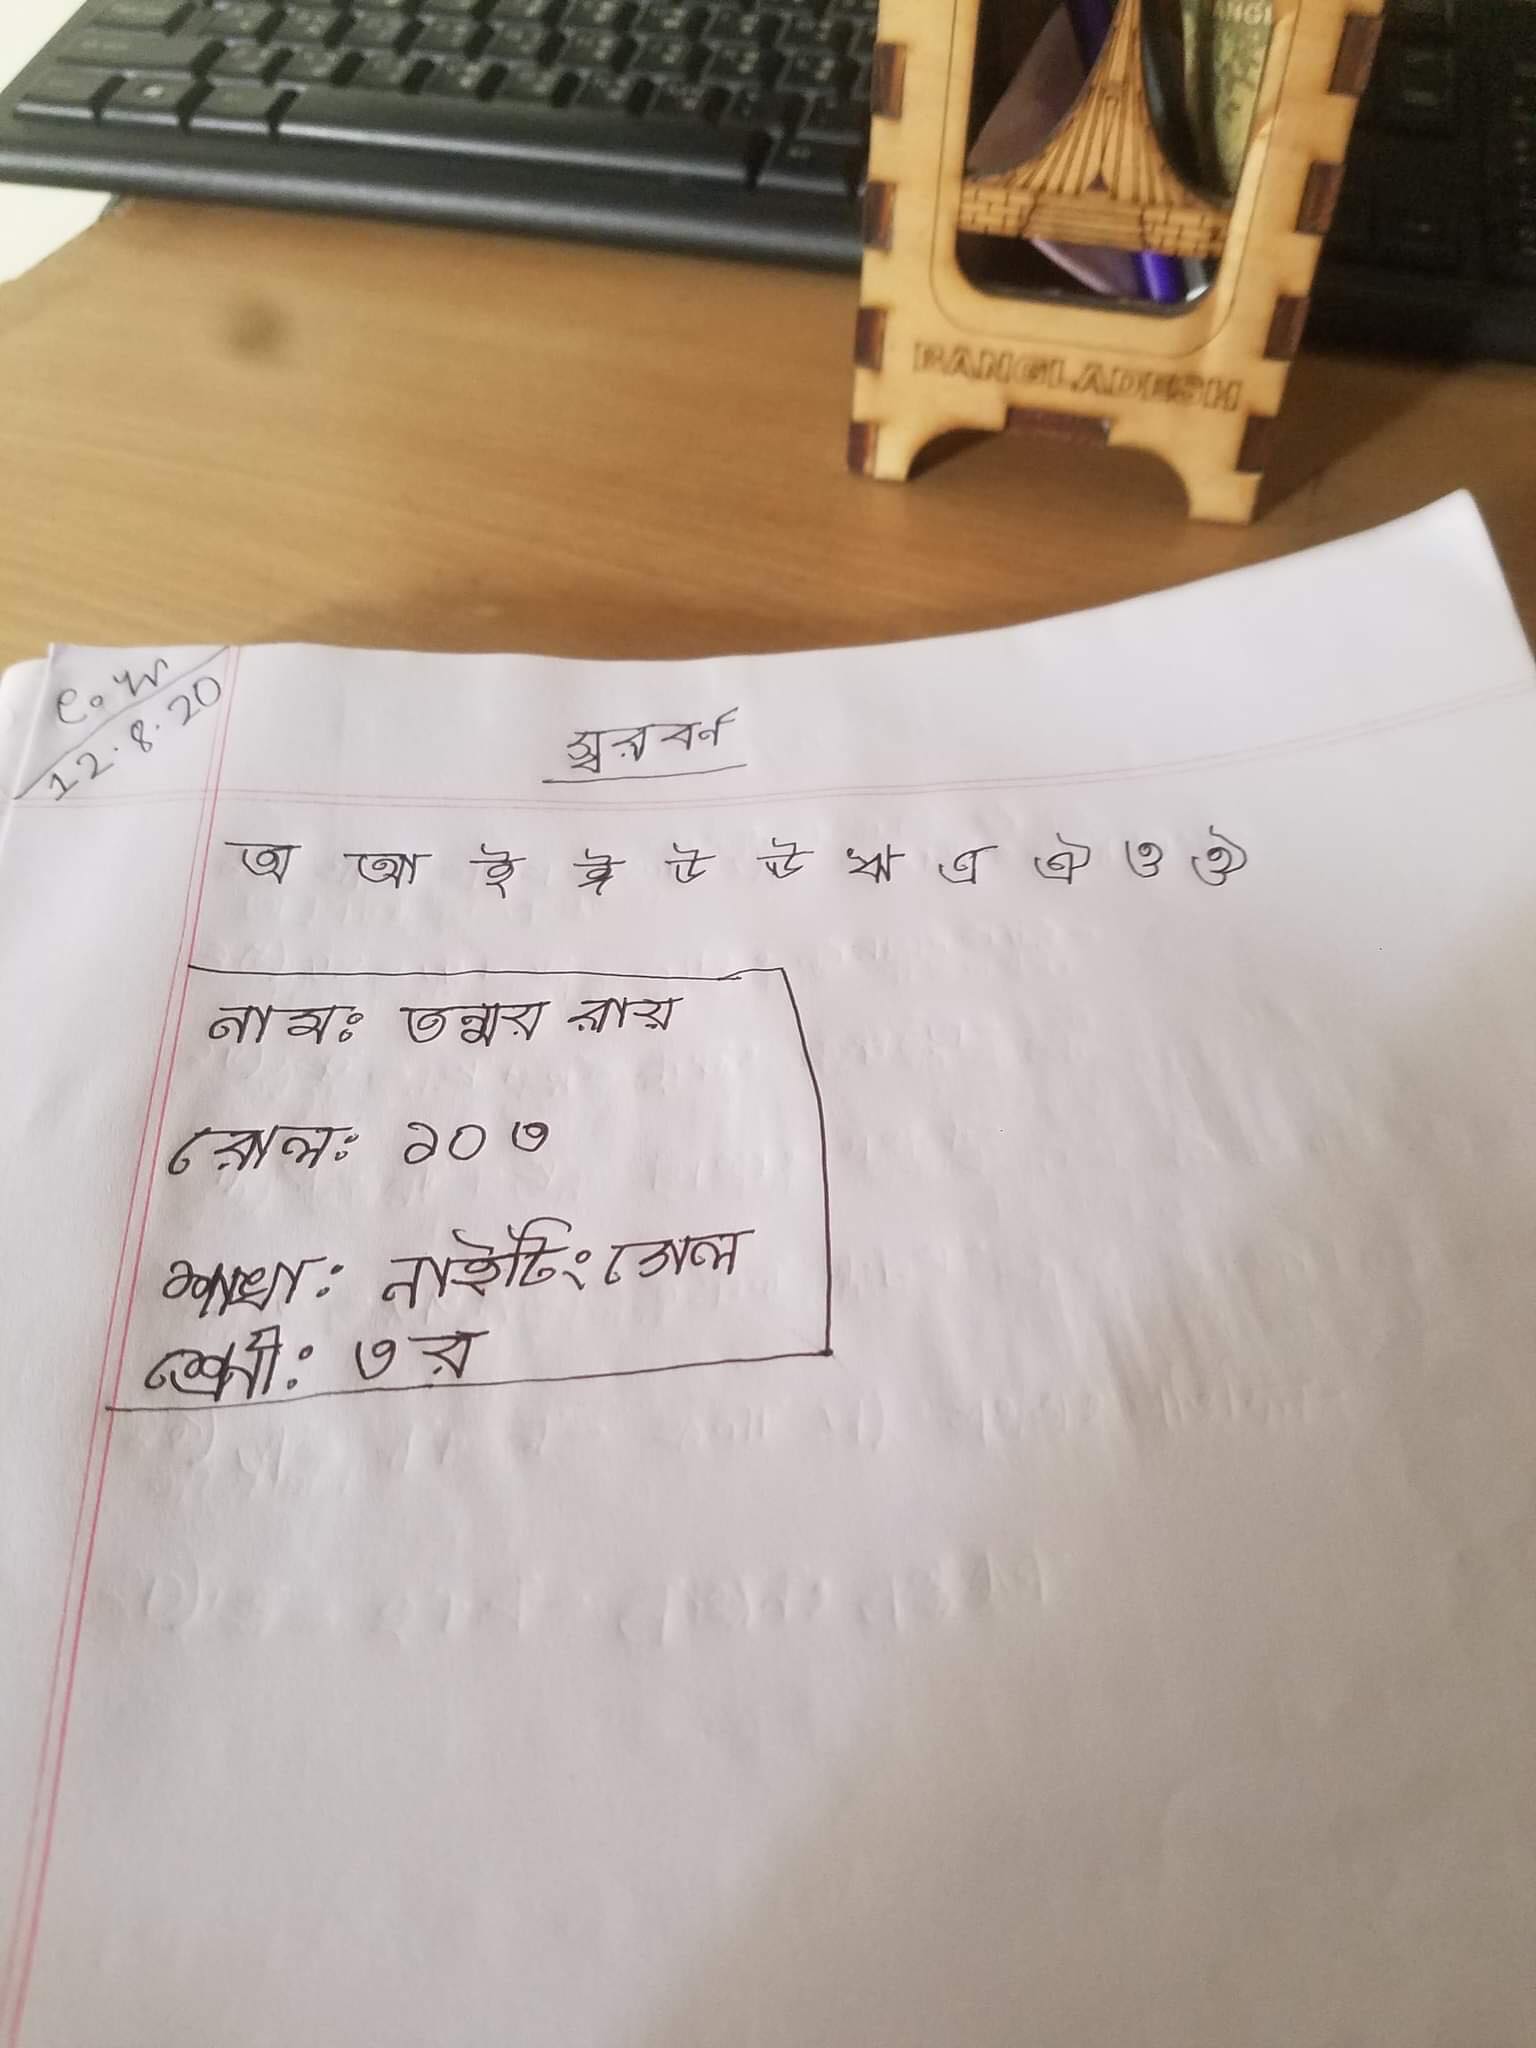 BANGLADESH
C.W
12.8.20
স্বরবর্ণ
অ আ ই ঈ উ ঊ ঋ এ ঐ ও ঔ
নামঃ তন্ময় রায়
রোলঃ ১০৩
শাখা: নাইটিংগেল
শ্রেণী: ৩য়